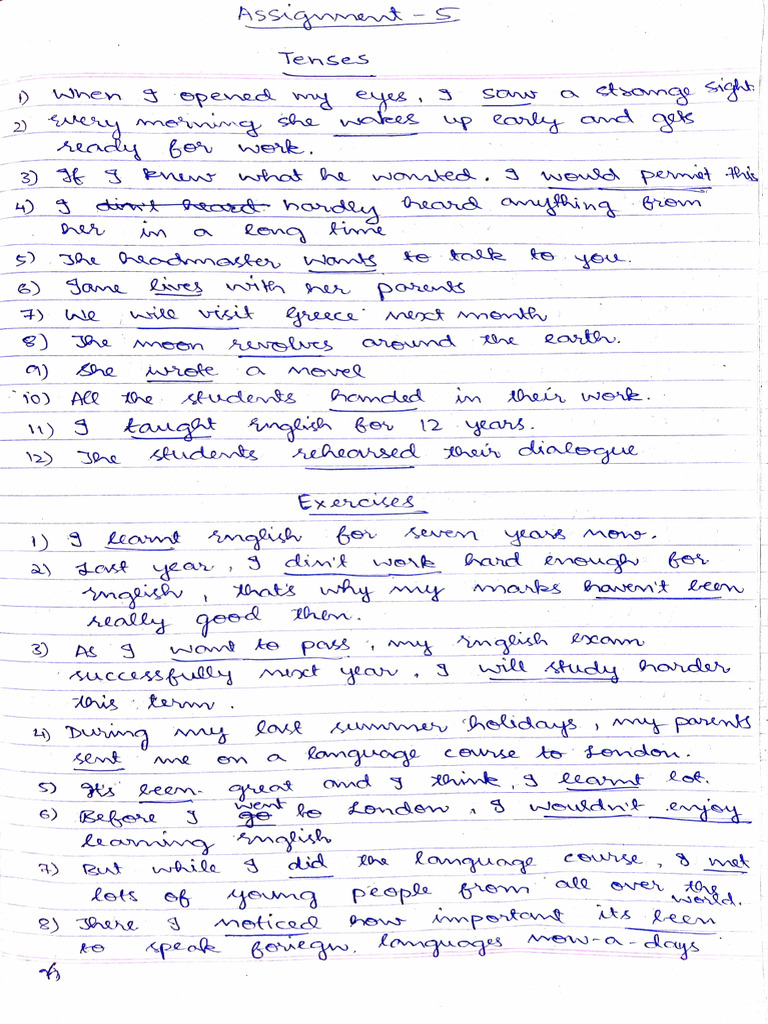 Assignment - 5
Tenses
1) When I opened my eyes, I saw a strange sight.
2) Every morning she wakes up early and gets
ready for work.
3) If I knew what he wanted. I would permit this
4) I din't heard hardly heard anything from
her in a long time
5) The headmaster wants to talk to you.
6) Jane lives with her parents
7) We will visit Greece next month
8) The moon revolves around the earth.
9) She wrote a novel
10) All the students handed in their work.
11) I taught English for 12 years.
12) The students rehearsed their dialogue
Exercises
1) I learnt English for seven years now.
2) Last year, I din't work hard enough for
English, that's why my marks haven't been
really good then.
3) As I want to pass, my English exam
successfully next year, I will study harder
this term.
4) During my last summer holidays, my parents
sent me on a language course to London.
5) It's been great and I think, I learnt lot.
6) Before I go went to London, I wouldn't enjoy
learning English
7) But while I did the language course, I met
lots of young people from all over the
world.
8) There I noticed how important its been
to speak foriegn. languages now-a-days